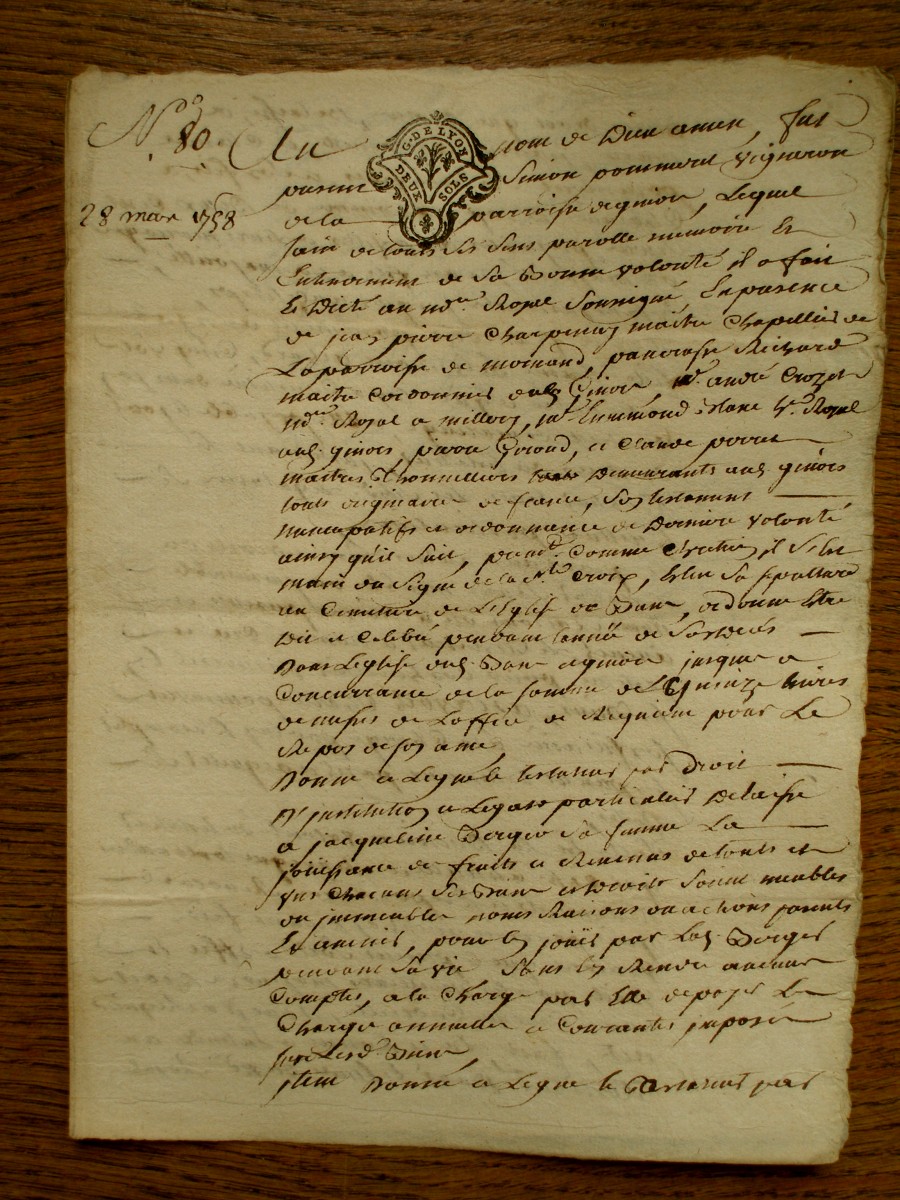 N.º 80.
28 mars 1758
G. DE LYON
DEUX SOLS
Au nom de Dieu amen, fut
present Simon pommerol vigneron
de la parroisse de Lequel
sain de touts ses sens parolle memoire Et
Entendement de sa Bonne volonté il a fait
Et Dicté au nd.re Royal soussigné, En presence
de jean pierre Charpenay maitre Chapellier de
La parroisse de mornand, pancrasse Richard
maitre cordonnier aud. m.e andré Crozet
nd.re Royal a millery, Royal
aud. girord, et Claude perret
maitres Thonnelliers Demeurants aud.
touts originaire de france, son testament
nuncupatif et ordonnance de Derniere volonté
ainsy qu'il suit, premt. Comme chretien il s'est
muni du signe de la s.te Croix, Eslu sa sepulture
au Cimetiere de L'Eglise de ordonne Estre
Dit et Celebré pendant l'année de son Decés
Dans L'eglise dud. jusques a
Concurrance de la somme de Quinze livres
de messes de L'office de Requiem pour Le
Repos de son ame,
Donne et Legue le testateur par Droit
D'institution et Legats particulier Delaisse
a jacqueline Berger sa femme La
joüissance de fruits et Revenus de touts et
uns Chacuns ses Biens et Droits soient meubles
ou immeubles noms Raisons ou actions presents
Et avenir, pour En joüir par Lad. Berger
pendant sa vie sans En Rendre aucun
Comptes, a la Charge par Elle de payer Les
Charges annuelles et Courantes imposée
sur Lesd. Biens,
jtem Donne et Legue le Testateur par